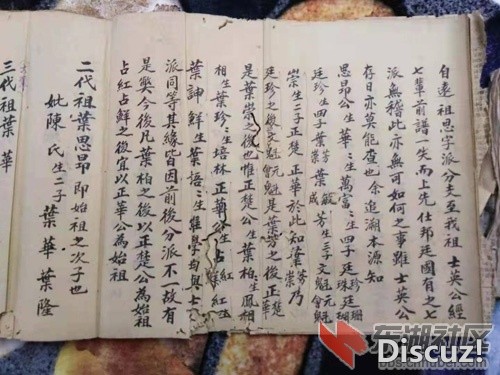 自遠祖思字派分支至我祖士英公經
七輩前譜一失而上先仕邦廷國有之七
派無稽此亦無可如何之事雖士英公
存日亦莫能查也余追溯本源知
思昂公生華華生萬富富生四子廷珍珊珏瑚
廷珍生四子葉崇芳葉成芳生三子文魁元魁
崇生二子正楚正華於此知葉崇乃
廷珍之後文魁元魁會魁是葉芳之後正楚正華
是葉崇之後也惟正楚公生葉柏生鳳相
相生葉珍珍生培林正華公生占紅紅生
葉詇鮮生葉培
派同等其緣皆因前後分派不一故有
是獘今後凡葉柏之後以正楚公為始祖
占紅占鮮之後宜以正華公為始祖
二代祖葉思昂即始祖之次子也
妣陳氏生二子葉華葉隆
三代祖葉華
东湖社区
Discuz!